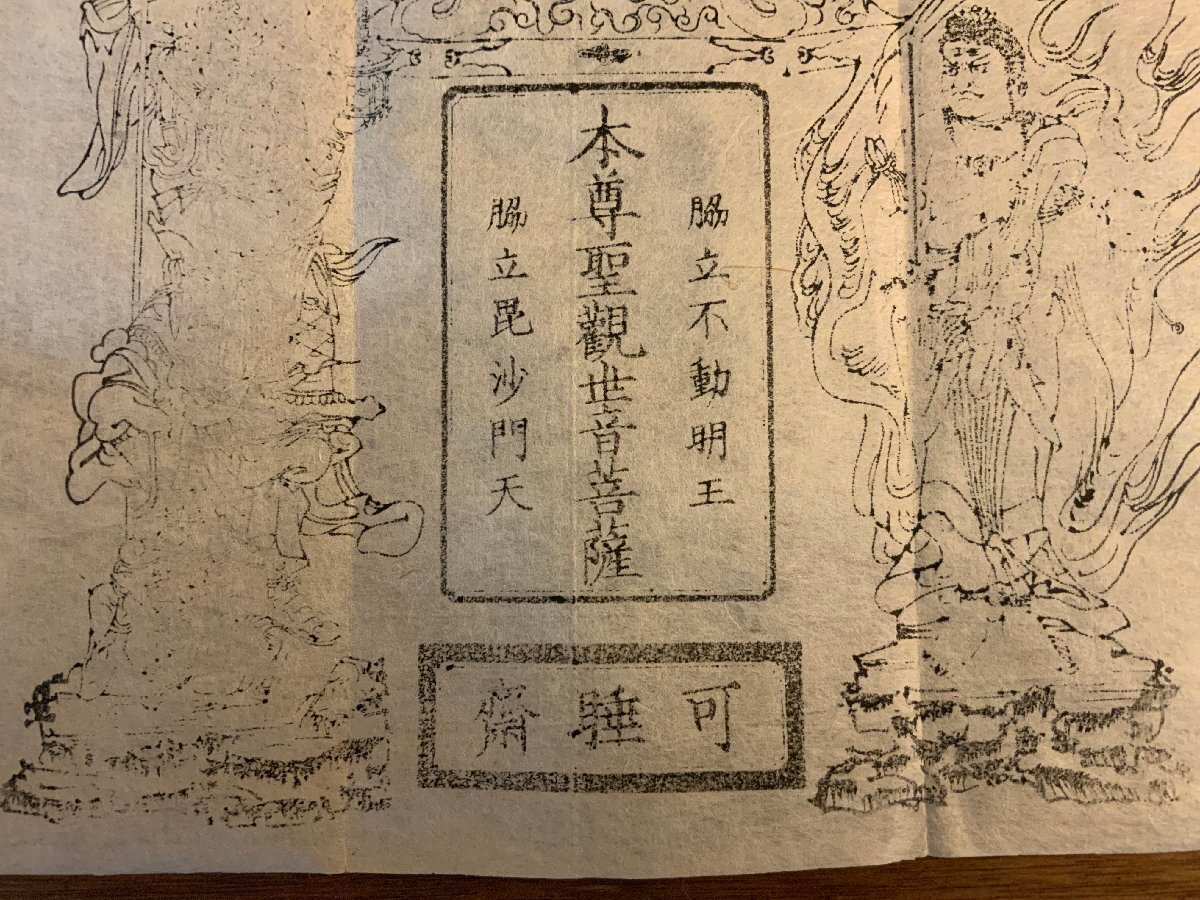 脇立不動明王
本尊聖觀世音菩薩
脇立毘沙門天
可睡齋